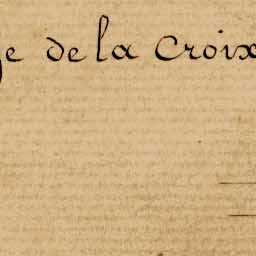 ge de la Croix